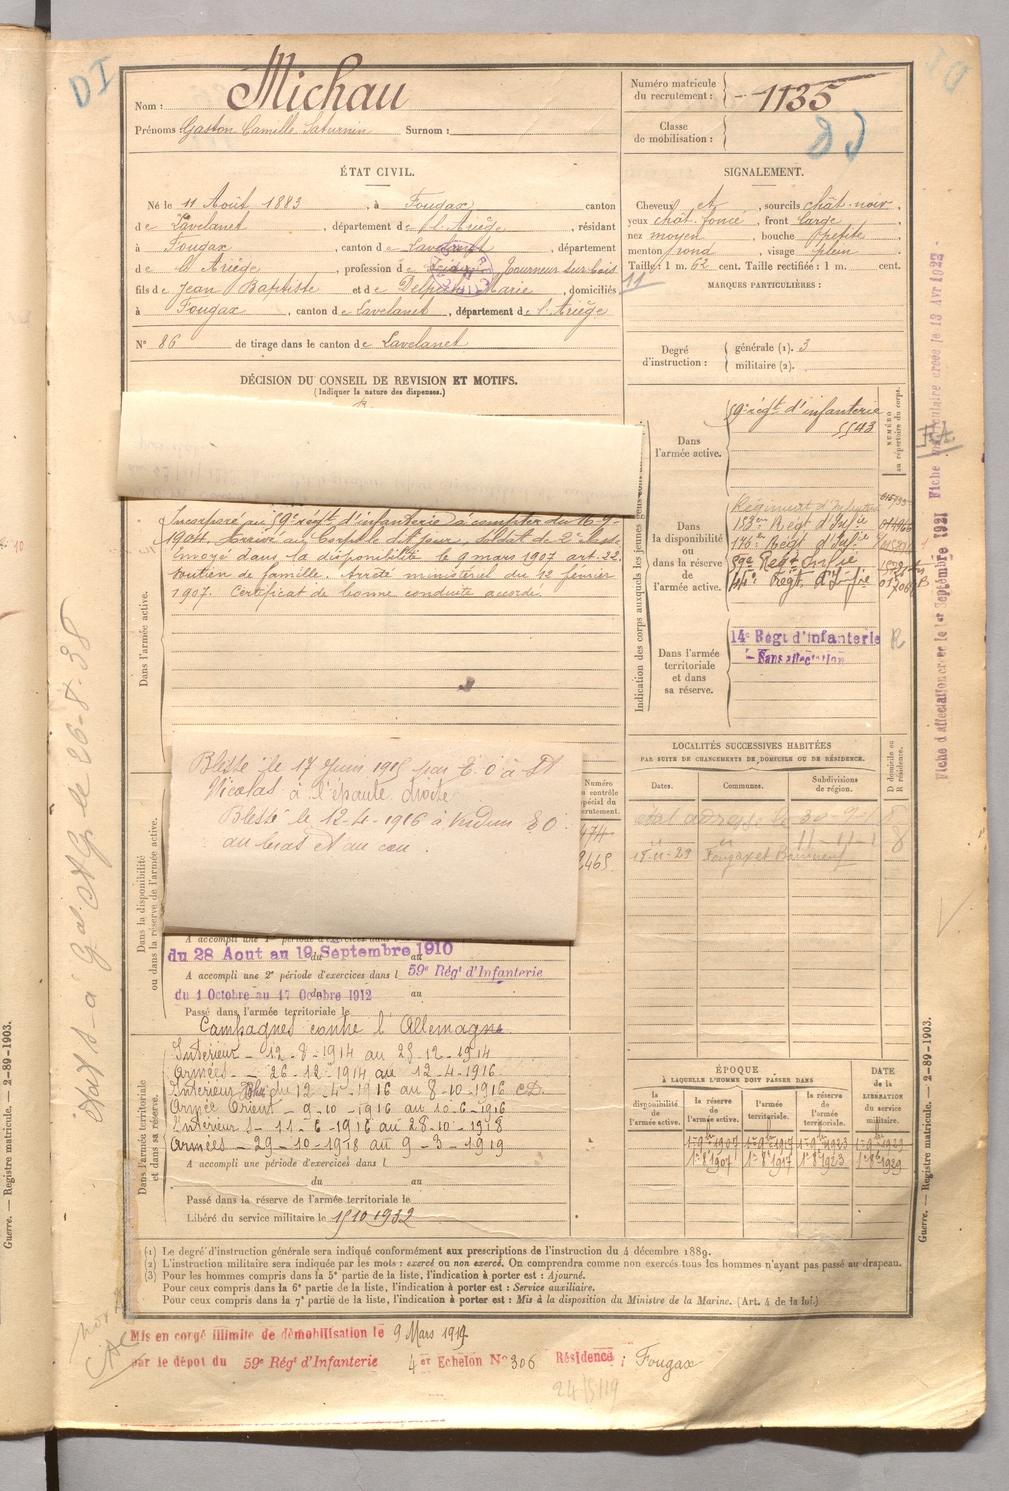 DI
Nom : Michau
Prénoms : Gaston Camille Saturnin Surnom :
Numéro matricule du recrutement : 1135
Classe de mobilisation :
ÉTAT CIVIL.
Né le 11 Août 1883, à Fougax, canton
de Lavelanet, département de l'Ariège, résidant
à Fougax, canton de Lavelanet, département
de l'Ariège, profession de Tourneur sur bois
fils de Jean Baptiste et de Marie, domiciliés
à Fougax, canton de Lavelanet, département de l'Ariège
N° 86 de tirage dans le canton de Lavelanet
SIGNALEMENT.
Cheveux et, sourcils chât. noir,
yeux chât. foncé, front large
nez moyen, bouche petite
menton rond, visage plein
Taille : 1 m. 62 cent. Taille rectifiée : 1 m. cent.
11
MARQUES PARTICULIÈRES :
Degré d'instruction : générale (1). 3
militaire (2).
DÉCISION DU CONSEIL DE REVISION ET MOTIFS.
(Indiquer la nature des dispenses.)
Dans l'armée active.
Incorporé au 59e régt d'infanterie à compter du 16-9-
1904. Arrivé au corps le dit jour, soldat de 2e classe
Envoyé dans la disponibilité le 9 mars 1907 art. 22.
soutien de famille. Arrêté ministériel du 12 février
1907. Certificat de bonne conduite accordé.
Indication des corps auxquels les jeunes gens sont
NUMÉRO au répertoire du corps.
Dans l'armée active.
59e régt d'infanterie
5543
Dans la disponibilité ou dans la réserve de l'armée active.
Régiment d'Infanterie
153e Régt d'Infie
176e Régt d'Infie
59e Regt Infie
44e Regt. d'Infie
Dans l'armée territoriale et dans sa réserve.
14e Régt d'Infanterie
Sans affectation
R
Fiche d'affectation créée le 1er Septembre 1921
Dans la disponibilité ou dans la réserve de l'armée active.
Blessé le 17 Juin 1915 par E. O à St
Nicolas à l'épaule droite
Blessé le 12-4-1916 à Verdun E O.
au bras et au cou.
LOCALITÉS SUCCESSIVES HABITÉES
PAR SUITE DE CHANGEMENTS DE DOMICILE OU DE RÉSIDENCE.
Dates. Communes. Subdivisions de région. D domicile ou R résidence.
15-11-29 Fougax et Barrineuf
du 28 Aout au 19 Septembre 1910
A accompli une 2e période d'exercices dans l 59e Régt d'Infanterie
du 1 Octobre au 17 Octobre 1912 au
Passé dans l'armée territoriale le
Dans l'armée territoriale et dans sa réserve.
Campagnes contre l'Allemagne
Intérieur - 12-8-1914 au 25-12-1914
Armées - 26-12-1914 au 12-4-1916
Intérieur Blessé du 12-4-1916 au 8-10-1916 CD.
Armée Orient - 9-10-1916 au 10-6-1916
Intérieur - 11-6-1916 au 28-10-1918
Armées - 29-10-1918 au 9-3-1919
A accompli une période d'exercices dans l
du au
Passé dans la réserve de l'armée territoriale le
Libéré du service militaire le 15 10 1932
ÉPOQUE
À LAQUELLE L'HOMME DOIT PASSER DANS
la disponibilité de l'armée active. la réserve de l'armée active. l'armée territoriale. la réserve de l'armée territoriale.
DATE de la LIBÉRATION du service militaire.
1er 8bre 1907 1er 8bre 1917 1er 8bre 1923 1er 8bre 1929
(1) Le degré d'instruction générale sera indiqué conformément aux prescriptions de l'instruction du 4 décembre 1889.
(2) L'instruction militaire sera indiquée par les mots : exercé ou non exercé. On comprendra comme non exercés tous les hommes n'ayant pas passé au drapeau.
(3) Pour les hommes compris dans la 5e partie de la liste, l'indication à porter est : Ajourné.
Pour ceux compris dans la 6e partie de la liste, l'indication à porter est : Service auxiliaire.
Pour ceux compris dans la 7e partie de la liste, l'indication à porter est : Mis à la disposition du Ministre de la Marine. (Art. 4 de la loi.)
Mis en congé illimité de démobilisation le 9 Mars 1919
par le dépot du 59e Régt d'Infanterie 4er Echelon N° 306 Résidence : Fougax
24/5/19
Guerre. — Registre matricule. — 2-89-1903.
Guerre. — Registre matricule. — 2-89-1903.